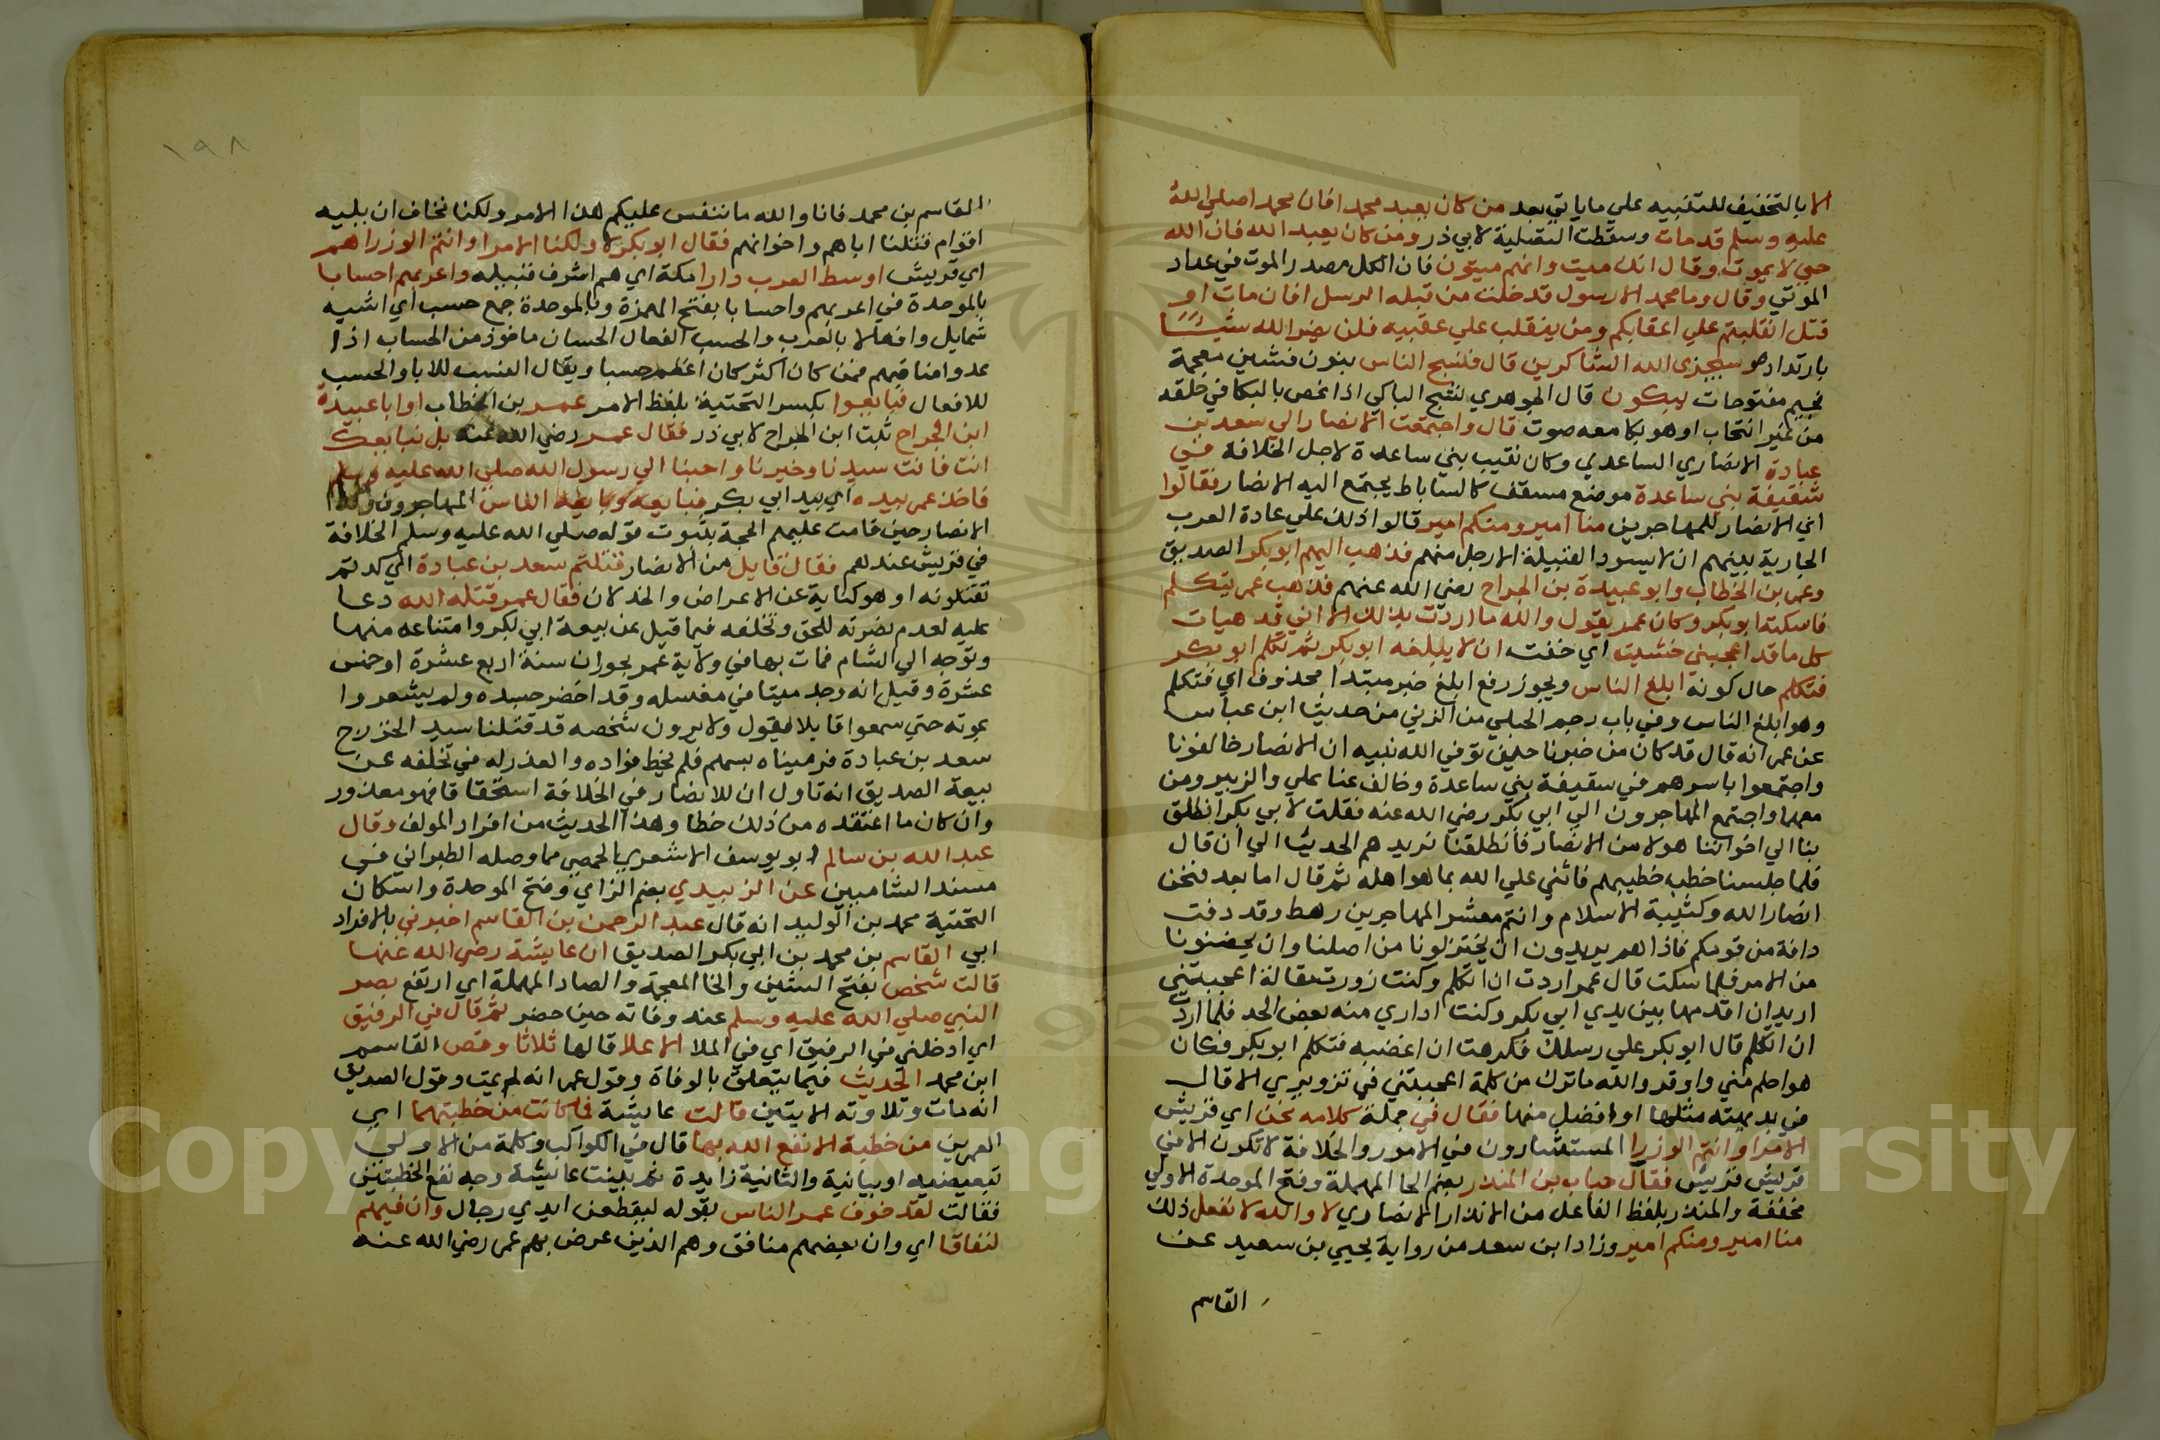 الا بالتخفيف للتنبيه علي ما ياتي بعد من كان يعبد محمدا فان محمدا صلي الله
عليه وسلم قد مات وسقطت التصلية لابي ذر ومن كان يعبد الله فان الله
حي لا يموت وقال انك ميت وانهم ميتون فان الكل بصدد الموت في عداد
الموتي وقال وما محمد الا رسول قد خلت من قبله الرسل افان مات او
قتل انقلبتم علي اعقابكم ومن ينقلب علي عقبيه فلن يضر الله شيئا
بارتداده وسيجزي الله الشاكرين قال فنشج الناس بنون فشين معجمة
فجيم مفتوحات يبكون قال الجوهري نشج الباكي اذا غص بالبكا في حلقه
من غير انتحاب او هو بكا معه صوت قال واجتمعت الانصار الي سعد بن
عبادة الانصاري الساعدي وكان نقيب بني ساعدة لاجل الخلافة في
سقيفة بني ساعدة موضع مسقف كالساباط يجتمع اليه الانصار فقالوا
اي الانصار للمهاجرين منا امير ومنكم امير قالوا ذلك علي عادة العرب
الجارية بينهم ان لا يسود القبيلة الا رجل منهم فذهب اليهم ابو بكر الصديق
وعمر بن الخطاب وابو عبيدة بن الجراح رضي الله عنهم فذهب عمر يتكلم
فاسكته ابو بكر وكان عمر يقول والله ما اردت بذلك الا اني قد هيات
كلاما قد اعجبني خشيت اي خفت ان لا يبلغه ابو بكر ثم تكلم ابو بكر
فتكلم حال كونه ابلغ الناس ويجوز رفع ابلغ خبر مبتدا محذوف اي فتكلم
وهو ابلغ الناس وفي باب رجم الحبلي من الزني من حديث ابن عباس
عن عمر انه قال قد كان من خبرنا حين توفي الله نبيه ان الانصار خالفونا
واجتمعوا باسرهم في سقيفة بني ساعدة وخالف عنا علي والزبير ومن
معهما واجتمع المهاجرون الي ابي بكر رضي الله عنه فقلت لابي بكر انطلق
بنا الي اخواننا هولا من الانصار فانطلقنا نريدهم الحديث الي ان قال
فلما جلسنا خطب خطيبهم فاثني علي الله بما هو اهله ثم قال اما بعد فنحن
انصار الله وكتيبة الاسلام وانتم معشر المهاجرين رهط وقد دفت
دافة من قومكم فاذا هم يريدون ان يختزلونا من اصلنا وان يحضنونا
من الامر فلما سكت قال عمر اردت ان اتكلم وكنت زورت مقالة اعجبتني
اريد ان اقدمها بين يدي ابي بكر وكنت اداري منه بعض الحد فلما اردت
ان اتكلم قال ابو بكر علي رسلك فكرهت ان اغضبه فتكلم ابو بكر فكان
هو احلم مني واوقر والله ما ترك من كلمة اعجبتني في تزويري الا قال
في بديهته مثلها او افضل منها فقال في جملة كلامه نحن اي قريش
الامرا وانتم الوزرا المستشارون في الامور والخلافة لا تكون الا في
قريش فقال حباب بن المنذر بضم الحا المهملة وفتح الموحدة الاولي
مخففة والمنذر بلفظ الفاعل من الانذار الانصاري لا والله لا نفعل ذلك
منا امير ومنكم امير وزاد ابن سعد من رواية يحيي بن سعيد عن
القاسم
١٩٨
القاسم بن محمد فانا والله ما ننفس عليكم هذا الامر ولكنا نخاف ان يليه
اقوام قتلنا اباهم واخوانهم فقال ابو بكر لا ولكنا الامرا وانتم الوزرا هم
اي قريش اوسط العرب دارا مكة اي هم اشرف قبيلة واعربهم احسابا
بالموحدة في اعربهم واحسابا بفتح الهمزة وبالموحدة جمع حسب اي اشبه
شمايل وافعالا بالعرب والحسب الفعال الحسان ماخوذ من الحساب اذا
عدوا مناقبهم فمن كان اكثر كان اعظم حسبا ويقال النسب للابا والحسب
للافعال فبايعوا بكسر التحتية بلفظ الامر عمر بن الخطاب او ابا عبيدة
ابن الجراح ثبت ابن الجراح لابي ذر فقال عمر رضي الله عنه بل نبايعك
انت فانت سيدنا وخيرنا واحبنا الي رسول الله صلي الله عليه وسلم
فاخذ عمر بيده اي بيد ابي بكر فبايعه وبايعه الناس المهاجرون وكذا
الانصار حين قامت عليهم الحجة بثبوت قوله صلي الله عليه وسلم الخلافة
في قريش عندهم فقال قايل من الانصار قتلتم سعد بن عبادة اي كدتم
تقتلونه او هو كناية عن الاعراض والخذلان فقال عمر قتله الله دعا
عليه لعدم نصرته للحق وتخلفه فيما قيل عن بيعة ابي بكر وامتناعه منها
وتوجه الي الشام فمات بها في ولاية عمر بحوران سنة اربع عشرة او خمس
عشرة وقيل انه وجد ميتا في مغسله وقد اخضر جسده ولم يشعروا
بموته حتي سمعوا قايلا يقول ولا يرون شخصه قد قتلنا سيد الخزرج
سعد بن عبادة فرميناه بسهم فلم يخط فواده والعذر له في تخلفه عن
بيعة الصديق انه تاول ان للانصار في الخلافة استحقاقا فهو معذور
وان كان ما اعتقده من ذلك خطا وهذا الحديث من افراد المولف وقال
عبد الله بن سالم ابو يوسف الاشعري الحمصي مما وصله الطبراني في
مسند الشاميين عن الزبيدي بضم الزاي وفتح الموحدة واسكان
التحتية محمد بن الوليد انه قال عبد الرحمن بن القاسم اخبرني بالافراد
ابي القاسم بن محمد بن ابي بكر الصديق ان عايشة رضي الله عنها
قالت شخص بفتح الشين والخا المعجمة والصاد المهملة اي ارتفع بصر
النبي صلي الله عليه وسلم عند وفاته حين حضر ثم قال في الرفيق
اي ادخلني في الرفيق اي في الملا الاعلا قالها ثلاثا وقص القاسم
ابن محمد الحديث فيما يتعلق بالوفاة وقول عمر انه لم يمت وقول الصديق
انه مات وتلاوته الايتين قالت عايشة فما كانت من خطبتهما اي
العمرين من خطبة الا نفع الله بها قال في الكواكب وكلمة من الاولي
تبعيضية او بيانية والثانية زايدة ثم بينت عايشة وجه نفع الخطبتين
فقالت لقد خوف عمر الناس بقوله ليقطعن ايدي رجال وان فيهم
لنفاقا اي وان بعضهم منافق وهم الذين عرض بهم عمر رضي الله عنه